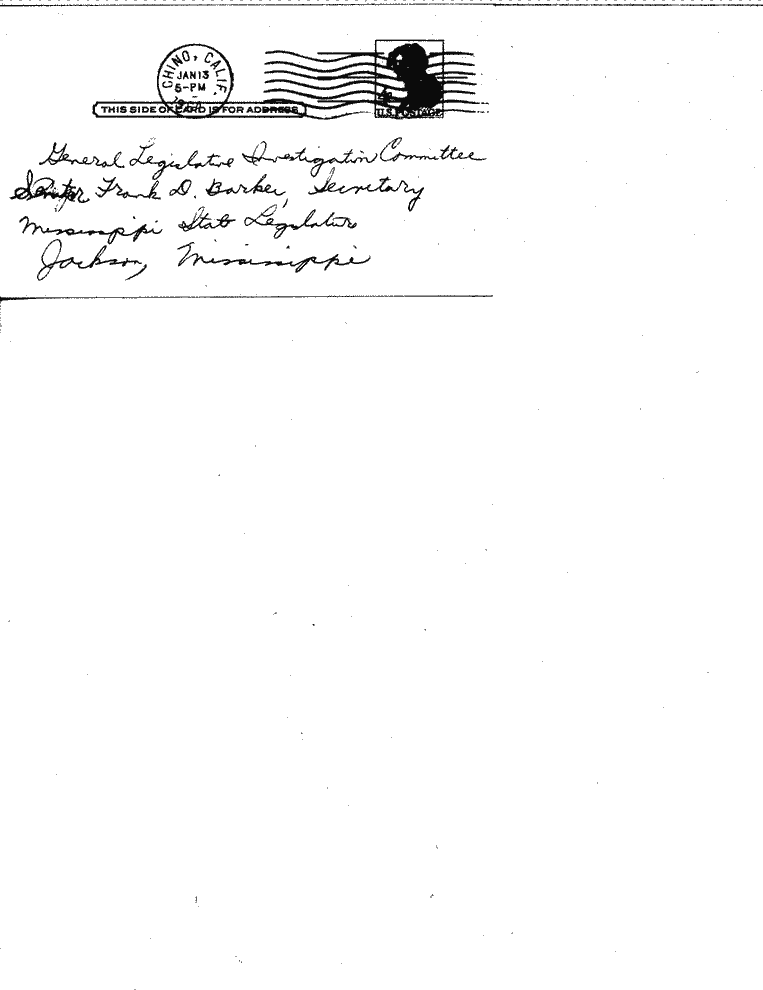 CHINO, CALIF.
JAN 13
5-PM
THIS SIDE OF CARD IS FOR ADDRESS
4¢
U.S. POSTAGE
General Legislative Investigation Committee
Senator Frank D. Barber, Secretary
Mississippi State Legislature
Jackson, Mississippi